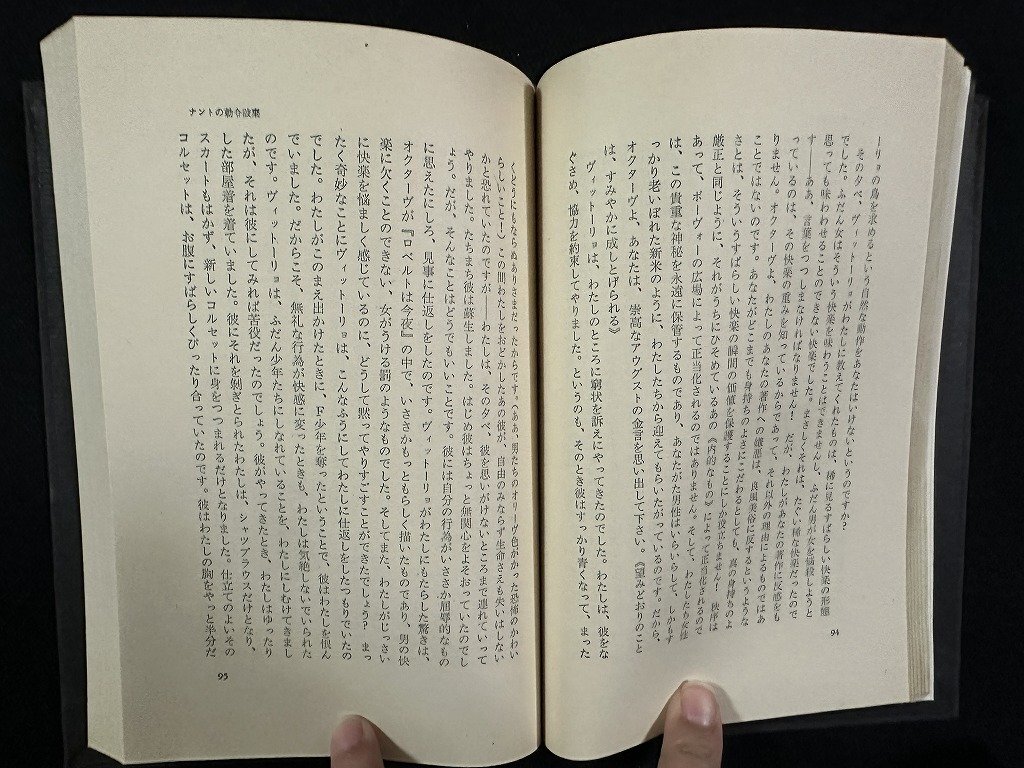 ーリョの鳥を求めるという自然な動作をあなたはいけないというのですか？
その夕べ、ヴィットーリョがわたしに教えてくれたものは、稀に見るすばらしい快楽の形態
でした。ふだん女はそういう快楽を味わうことはできませんし、ふだん男が女を悩殺しようと
思っても味わわせることのできない快楽でした。まさしくそれは、たぐい稀な快楽だったので
す――ああ、言葉をつつしまなければなりません！　だが、わたしがあなたの著作に反感をも
っているのは、その快楽の重みを知っているからであって、それ以外の理由によるものではあ
りません。オクターヴよ、わたしのあなたの著作への嫌悪は、良風美俗に反するというような
ことではないのです。あなたがどこまでも身持ちのよさにこだわるとしても、真の身持ちのよ
さとは、そういうすばらしい快楽の瞬間の価値を保護することにしか役立ちません！　秩序は
厳正と同じように、それがうちにひそめているあの《内的なもの》によって正当化されるので
あって、ボーヴォーの広場によって正当化されるのではありません。そして、わたしたち女性
は、この貴重な神秘を永遠に保管するものであり、あなたがた男性はいらいらして、しかもす
っかり老いぼれた新米のように、わたしたちから迎えてもらいたがっているのです。だから、
オクターヴよ、あなたは、崇高なアウグストの金言を思い出して下さい。《望みどおりのこと
は、すみやかに成しとげられる》
ヴィットーリョは、わたしのところに窮状を訴えにやってきたのでした。わたしは、彼をな
ぐさめ、協力を約束してやりました。というのも、そのとき彼はすっかり青くなって、まった
94
くどうにもならぬありさまだったからです。（ああ、男たちのオリーヴ色がかった恐怖のかわい
らしいこと！）この間わたしをおどかしたあの彼が、自由のみならず生命さえも失いはしない
かと恐れていたのですが――わたしは、その夕べ、彼を思いがけないところまで連れていって
やりました。たちまち彼は蘇生しました。はじめ彼はちょっと無関心をよそおっていたのでし
ょう。だが、そんなことはどうでもいいことです。彼には自分の行為がいささか屈辱的なもの
に思えたにしろ、見事に仕返しをしたのです。ヴィットーリョがわたしにもたらした驚きは、
オクターヴが『ロベルトは今夜』の中で、いささかもっともらしく描いたものであり、男の快
楽に欠くことのできない、女がうける罰のようなものでした。そしてまた、わたしがじっさい
に快楽を悩ましく感じているのに、どうして黙ってやりすごすことができたでしょう？　まっ
たく奇妙なことにヴィットーリョは、こんなふうにしてわたしに仕返しをしたつもりでいたの
でした。わたしがこのまえ出かけたときに、Ｆ少年を奪ったということで、彼はわたしを恨ん
でいました。だからこそ、無礼な行為が快感に変ったときも、わたしは気絶しないでいられた
のです。ヴィットーリョは、ふだん少年たちにしなれていることを、わたしにしむけてきまし
たが、それは彼にしてみれば苦役だったのでしょう。彼がやってきたとき、わたしはゆったり
した部屋着を着ていました。彼にそれを剝ぎとられたわたしは、シャツブラウスだけとなり、
スカートもはかず、新しいコルセットに身をつつまれるだけとなりました。仕立てのよいその
コルセットは、お腹にすばらしくぴったり合っていたのです。彼はわたしの胸をやっと半分だ
ナントの勅令破棄
95